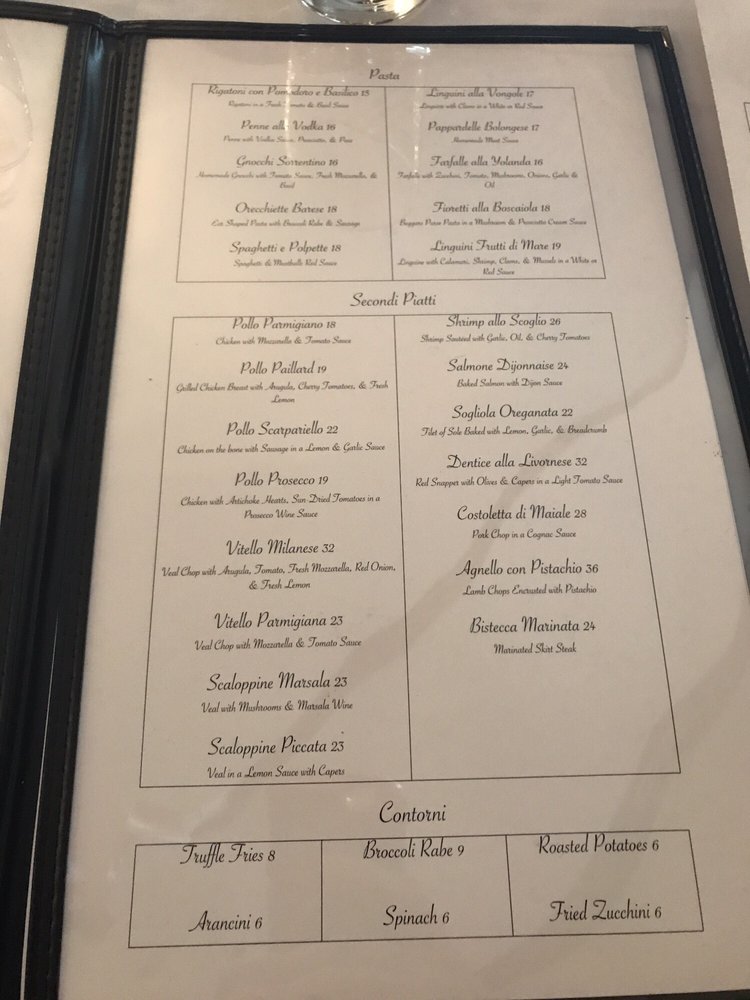 Pasta
Rigatoni con Pomodoro e Basilico 15
Rigatoni in a Fresh Tomato & Basil Sauce
Penne alla Vodka 16
Penne with Vodka Sauce, Prosciutto, & Peas
Gnocchi Sorrentino 16
Homemade Gnocchi with Tomato Sauce, Fresh Mozzarella, &
Basil
Orecchiette Barese 18
Ear Shaped Pasta with Broccoli Rabe & Sausage
Spaghetti e Polpette 18
Spaghetti & Meatballs Red Sauce
Linguini alla Vongole 17
Linguine with Clams in a White or Red Sauce
Pappardelle Bolongese 17
Homemade Meat Sauce
Farfalle alla Yolanda 16
Farfalle with Zucchini, Tomato, Mushrooms, Onions, Garlic &
Oil
Fioretti alla Boscaiola 18
Beggars Purse Pasta in a Mushroom & Prosciutto Cream Sauce
Linguini Frutti di Mare 19
Linguine with Calamari, Shrimp, Clams, & Mussels in a White or
Red Sauce
Secondi Piatti
Pollo Parmigiano 18
Chicken with Mozzarella & Tomato Sauce
Pollo Paillard 19
Grilled Chicken Breast with Arugula, Cherry Tomatoes, & Fresh
Lemon
Pollo Scarpariello 22
Chicken on the bone with Sausage in a Lemon & Garlic Sauce
Pollo Prosecco 19
Chicken with Artichoke Hearts, Sun-Dried Tomatoes in a
Prosecco Wine Sauce
Vitello Milanese 32
Veal Chop with Arugula, Tomato, Fresh Mozzarella, Red Onion,
& Fresh Lemon
Vitello Parmigiana 23
Veal Chop with Mozzarella & Tomato Sauce
Scaloppine Marsala 23
Veal with Mushrooms & Marsala Wine
Scaloppine Piccata 23
Veal in a Lemon Sauce with Capers
Shrimp allo Scoglio 26
Shrimp Sauteed with Garlic, Oil, & Cherry Tomatoes
Salmone Dijonnaise 24
Baked Salmon with Dijon Sauce
Sogliola Oreganata 22
Filet of Sole Baked with Lemon, Garlic, & Breadcrumb
Dentice alla Livornese 32
Red Snapper with Olives & Capers in a Light Tomato Sauce
Costoletta di Maiale 28
Pork Chop in a Cognac Sauce
Agnello con Pistachio 36
Lamb Chops Encrusted with Pistachio
Bistecca Marinata 24
Marinated Skirt Steak
Contorni
Truffle Fries 8
Broccoli Rabe 9
Roasted Potatoes 6
Arancini 6
Spinach 6
Fried Zucchini 6